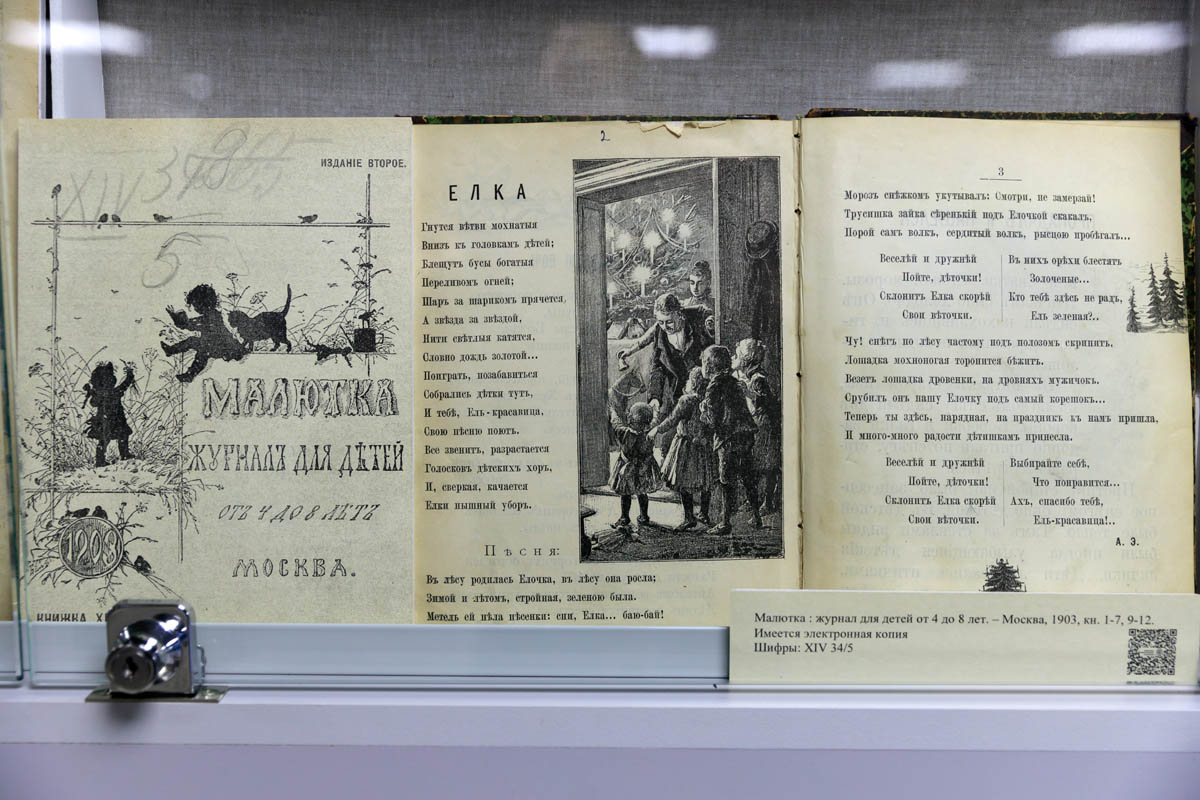 ИЗДАНІЕ ВТОРОЕ.
XIV 34
5
МАЛЮТКА
ЖУРНАЛЪ ДЛЯ ДѢТЕЙ
ОТЪ 4 ДО 8 ЛѢТЪ
МОСКВА.
1903
КНИЖКА
2
ЕЛКА
Гнутся вѣтви мохнатыя
Внизъ къ головкамъ дѣтей;
Блещутъ бусы богатыя
Переливомъ огней;
Шаръ за шарикомъ прячется,
А звѣзда за звѣздой,
Нити свѣтлыя катятся,
Словно дождь золотой...
Поиграть, позабавиться
Собрались дѣтки тутъ,
И тебѣ, Ель-красавица,
Свою пѣсню поютъ.
Все звенитъ, разрастается
Голосковъ дѣтскихъ хоръ,
И, сверкая, качается
Елки пышный уборъ.
Пѣсня:
Въ лѣсу родилась Елочка, въ лѣсу она росла;
Зимой и лѣтомъ, стройная, зеленою была.
Метель ей пѣла пѣсенки: спи, Елка... баю-бай!
3
Морозъ снѣжкомъ укутывалъ: Смотри, не замерзай!
Трусишка зайка сѣренькій подъ Елочкой скакалъ,
Порой самъ волкъ, сердитый волкъ, рысцою пробѣгалъ...
Веселѣй и дружнѣй
Пойте, дѣточки!
Склонитъ Елка скорѣй
Свои вѣточки.
Въ нихъ орѣхи блестятъ
Золоченые...
Кто тебѣ здѣсь не радъ,
Ель зеленая?..
Чу! снѣгъ по лѣсу частому подъ полозомъ скрипитъ,
Лошадка мохноногая торопится бѣжитъ.
Везетъ лошадка дровенки, на дровняхъ мужичокъ.
Срубилъ онъ нашу Елочку подъ самый корешокъ...
Теперь ты здѣсь, нарядная, на праздникъ къ намъ пришла,
И много-много радости дѣтишкамъ принесла.
Веселѣй и дружнѣй
Пойте, дѣточки!
Склонитъ Елка скорѣй
Свои вѣточки.
Выбирайте себѣ,
Что понравится...
Ахъ, спасибо тебѣ,
Ель-красавица!..
А. Э.
Малютка : журнал для детей от 4 до 8 лет. – Москва, 1903, кн. 1-7, 9-12.
Имеется электронная копия
Шифры: XIV 34/5